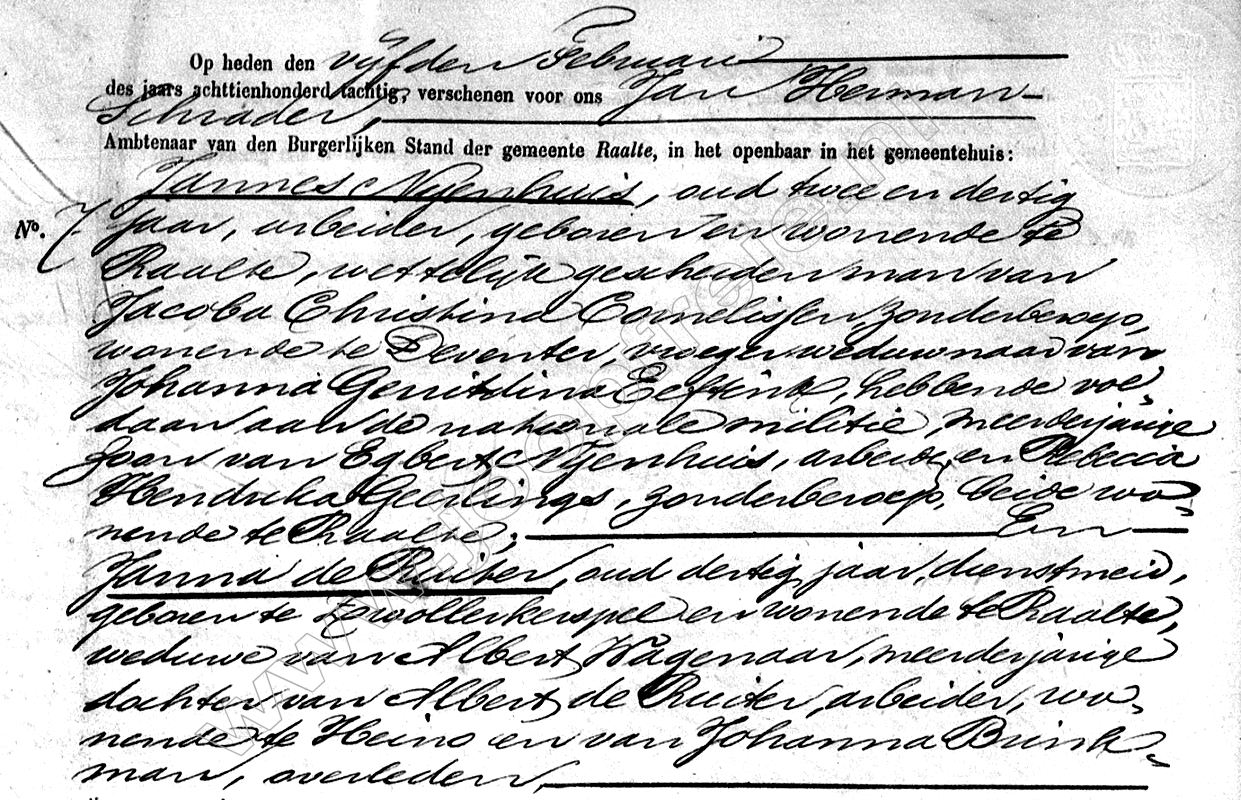 Op heden den vijfden Februari
des jaars achttienhonderd tachtig, verschenen voor ons Jan Herman
Schrader,
Ambtenaar van den Burgerlijken Stand der gemeente Raalte, in het openbaar in het gemeentehuis:
Jannes Nijenhuis, oud twee en dertig
No. 7. jaar, arbeider, geboren en wonende te
Raalte, wettelijk gescheiden man van
Jacoba Christina Cornelissen, zonder beroep,
wonende te Deventer, vroeger weduwnaar van
Johanna Gerritdina Eeftink, hebbende vol-
daan aan de nationale militie, meerderjarige
zoon van Egbert Nijenhuis, arbeider, en Rebecca
Hendrika Geerlings, zonder beroep, beide wo-
nende te Raalte; En
Janna de Ruiter, oud dertig jaar, dienstmeid,
geboren te Zwollerkerspel en wonende te Raalte,
weduwe van Albert Wagenaar, meerderjarige
dochter van Albert de Ruiter, arbeider, wo-
nende te Heino en van Johanna Brink-
man, overleden,